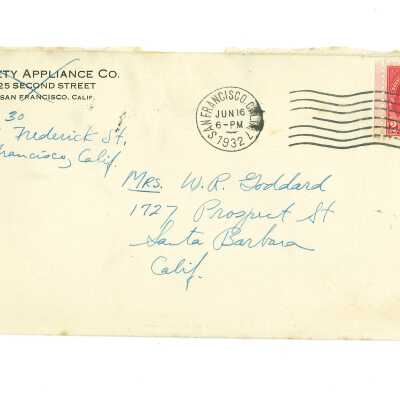 ETY APPLIANCE CO.
25 SECOND STREET
SAN FRANCISCO, CALIF.
30
Frederick St.
Francisco, Calif.
SAN FRANCISCO, CALIF.
JUN 16
6-PM
1932
Mrs. W. R. Goddard
1727 Prospect St
Santa Barbara
Calif.